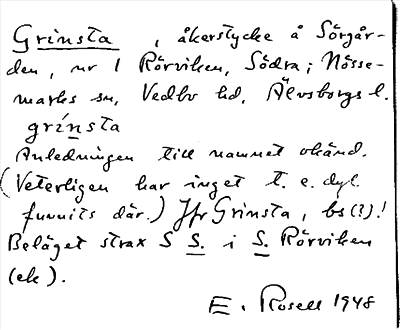 Grinsta, åkerstycke å Sörgår-
den, nr 1 Rörviken, Södra; Nösse-
marks sn, Vedbo hd, Älvsborgs l.
grínsta
Anledningen till namnet okänd.
(Veterligen har inget t. e. dyl.
funnits där.) Jfr Grinsta, bs(?)!
Beläget strax S S. i S. Rörviken
(ek).
E. Rosell 1948